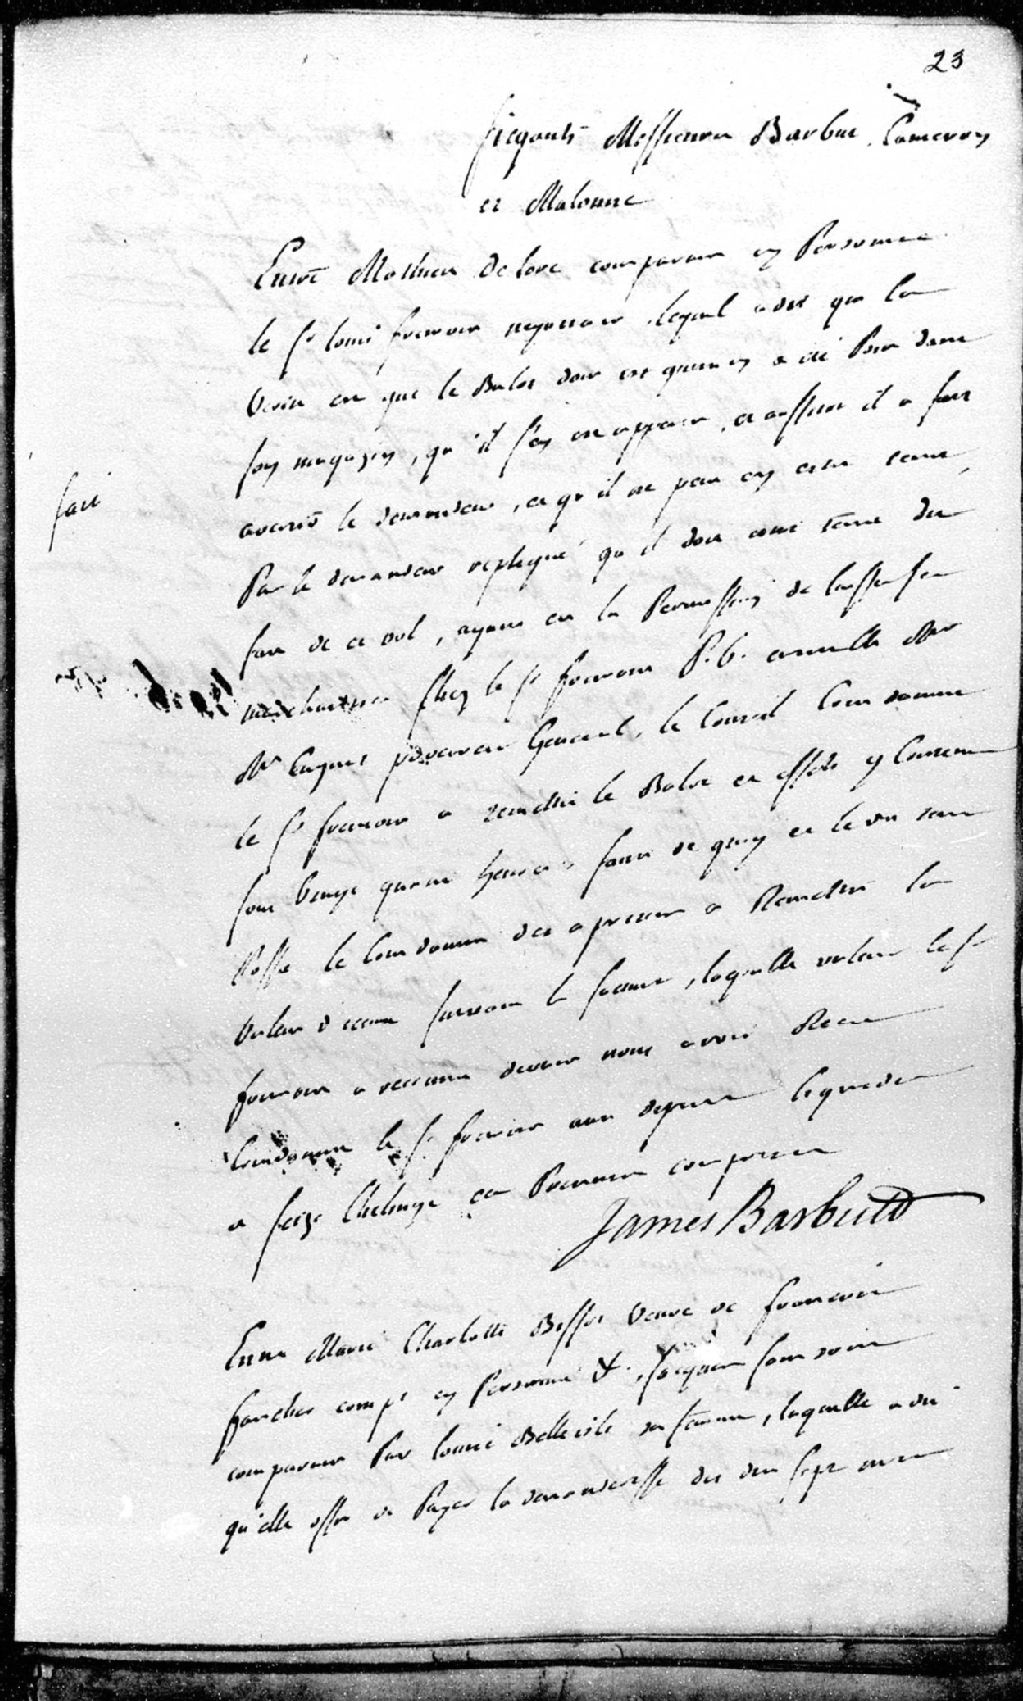 23
siegants Messieurs Barbut, Cameron
et Malonne
Entre Mathieu Delore comparant en Personne
le Sr louis fournier negociant lequel a dit que la
verité est que le Balot dont est question a été Pris dans
son magazin, qu'il s'en est apperçu, et aussitost il a fait
avertir le demandeur, et qu'il ne peut en estre tenu,
fait
Par le demandeur repliqué qu'il doit estre tenu du
fait de ce vol, ayant eu la Permission de laisser ses
marchandises chez le Sr fournier P. b. ensuite
Mr Cugnet procureur General, le Conseil Condamne
le Sr fournier a remettre le Balot et effets y Contenus
sous vingt quatre heures, faute de quoy et le dit tems
Passé le Condamne des a present a Remettre la
valeur d'iceux suivant la facture, laquelle valeur le Sr
fournier a reconnu devant nous avoir Receu
Condamne le Sr fournier aux depens liquidés
a seize Chelings et Present comprise
James Barbutt
Entre Marie Charlotte Veuve de francois
foucher compt en Personne & Jacques
comparant Par Louise Belleisle sa femme, laquelle a dit
qu'elle offre de Payer la demanderesse des dix sept